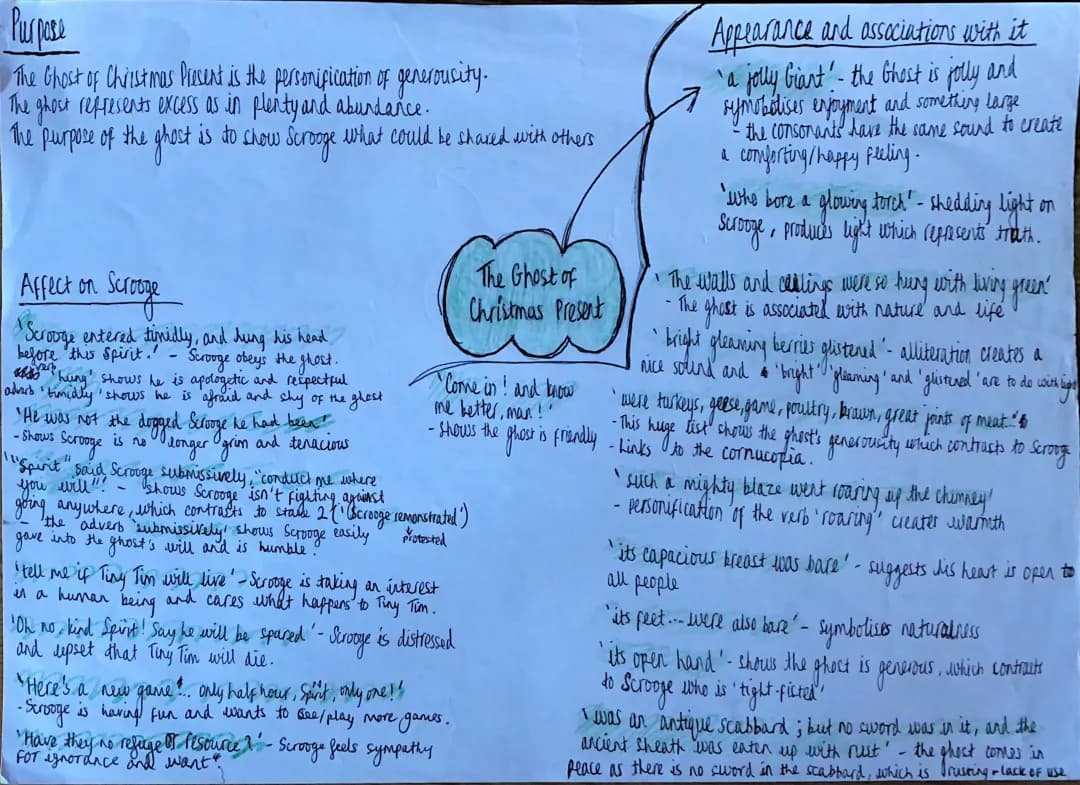 Purpose
The Ghost of Christmas Present is the personification of generousity.
The ghost represents excess as in plenty and abundance.
The purpose of the ghost is to show Scrooge what could be shared with others
Affect on Scrooge
'Scrooge entered timidly, and hung his head
before this Spirit.' - Scrooge obeys the ghost.
verb 'hung' shows he is apologetic and respectful
adverb 'timidly' shows he is afraid and shy of the ghost
'He was not the dogged Scrooge he had been'
- shows Scrooge is no longer grim and tenacious
'"Spirit" said Scrooge submissively, "conduct me where
you will"' - shows Scrooge isn't fighting against
going anywhere, which contrasts to stave 2 ('Scrooge remonstrated')
protested
- the adverb 'submissively' shows Scrooge easily
gave into the ghost's will and is humble.
'tell me if Tiny Tim will live' - Scrooge is taking an interest
in a human being and cares what happens to Tiny Tim.
'Oh no, kind Spirit! Say he will be spared' - Scrooge is distressed
and upset that Tiny Tim will die.
'Here's a new game'... only half hour, Spirit, only one!'
- Scrooge is having fun and wants to see/play more games.
'Have they no refuge or resource?' - Scrooge feels sympathy
for ignorance and want
The Ghost of
Christmas Present
'Come in! and know
me better, man!'
- shows the ghost is friendly
Appearance and associations with it
'a jolly Giant' - the Ghost is jolly and
symobolises enjoyment and something large
- the consonants have the same sound to create
a comforting/happy feeling.
'who bore a glowing torch' - shedding light on
Scrooge, produces light which represents truth.
'The walls and ceilings were so hung with living green'
- The ghost is associated with nature and life
'bright gleaming berries glistened' - alliteration creates a
nice sound and 'bright' 'gleaming' and 'glistened' are to do with light
'were turkeys, geese, game, poultry, brawn, great joints of meat'
- This huge list shows the ghost's generousity which contrasts to Scrooge
- Links to the cornucopia.
'such a mighty blaze went roaring up the chimney'
- personification of the verb 'roaring' creates warmth
'its capacious breast was bare' - suggests his heart is open to
all people
'its feet... were also bare' - symbolises naturalness
'its open hand' - shows the ghost is generous, which contrasts
to Scrooge who is 'tight-ficted'
'was an antique scabbard; but no sword was in it, and the
ancient sheath was eaten up with rust' - the ghost comes in
peace as there is no sword in the scabbard, which is rusting - lack of use